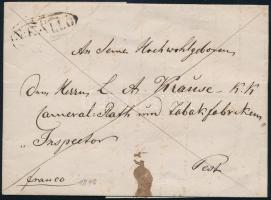 N. KÁLLÓ
An Seine Hochwohlgeboren
dem Herrn L. A. Krause K. K.
Cameral-Rath und Tabakfabriken
Inspector
Pest
franco